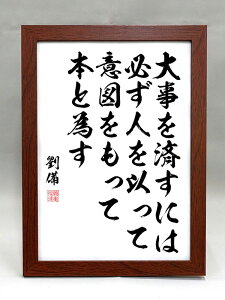 大事を済すには
必ず人を以って
意図をもって
本と為す
劉備